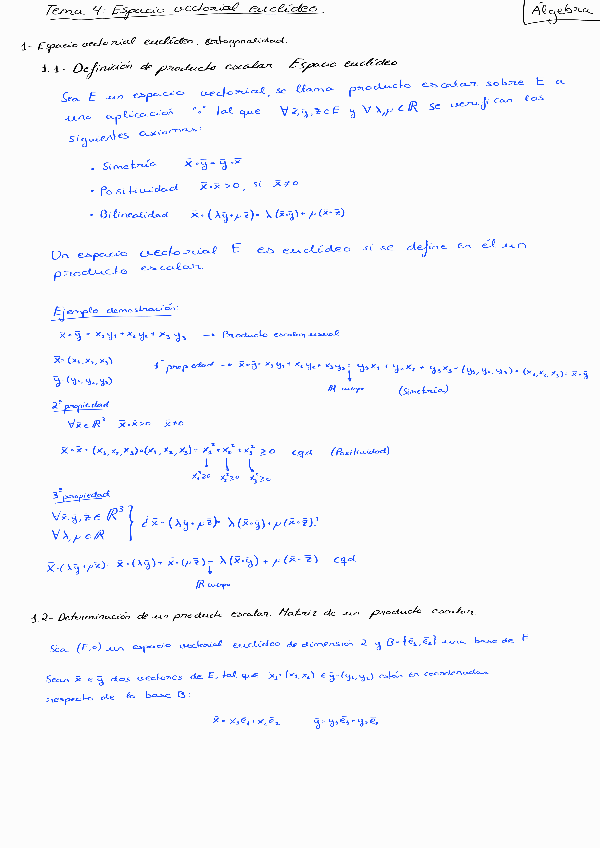 Tema 4: Espacio vectorial euclídeo.
Álgebra
1- Espacio vectorial euclídeo, ortogonalidad.
1.1- Definición de producto escalar. Espacio euclídeo
Sea E un espacio vectorial, se llama producto escalar sobre E a
una aplicación "∘" tal que ∀x̄,ȳ,z∈E y ∀λ,μ∈ℝ se verifican las
siguientes axiomas:
• Simetría x̄∘ȳ = ȳ∘x̄
• Positividad x̄∘x̄ >0, si x̄≠0
• Bilinealidad x∘(λȳ+μz̄)= λ(x̄∘ȳ)+μ(x∘z̄)
Un espacio vectorial E es euclídeo si se define en él un
producto escalar.
Ejemplo demostración:
x̄∘ȳ = x₁y₁+x₂y₂+x₃y₃ → Producto escalar usual
x̄=(x₁,x₂,x₃)
ȳ (y₁,y₂,y₃)
1ª propiedad → x̄∘ȳ= x₁y₁+x₂y₂+x₃y₃= y₁x₁+y₂x₂+y₃x₃=(y₁,y₂,y₃)∘(x₁,x₂,x₃)= ȳ∘x̄
ℝ cuerpo (Simetría)
2ª propiedad
∀x̄∈ℝ³ x̄∘x̄>0 x≠0
x̄∘x̄=(x₁,x₂,x₃)∘(x₁,x₂,x₃)= x₁²+x₂²+x₃² ≥0 cqd (Positividad)
x₁²≥0 x₂²≥0 x₃²≥0
3ª propiedad
∀x̄,y,z∈ℝ³
∀λ,μ∈ℝ
¿x̄∘(λȳ+μz̄)= λ(x̄∘y)+μ(x̄∘z̄)?
x̄∘(λȳ+μz̄)= x̄∘(λȳ)+x∘(μz̄)= λ(x̄∘ȳ)+μ(x̄∘z̄) cqd
ℝ cuerpo
1.2- Determinación de un producto escalar. Matriz de un producto escalar
Sea (E,∘) un espacio vectorial euclídeo de dimensión 2 y B={ē₁,ē₂} una base de E
Sean x̄ e ȳ dos vectores de E, tal que x̄=(x₁,x₂) e ȳ=(y₁,y₂) están en coordenadas
respecto de la base B:
x̄=x₁ē₁+x₂ē₂ ȳ=y₁ē₁+y₂ē₂